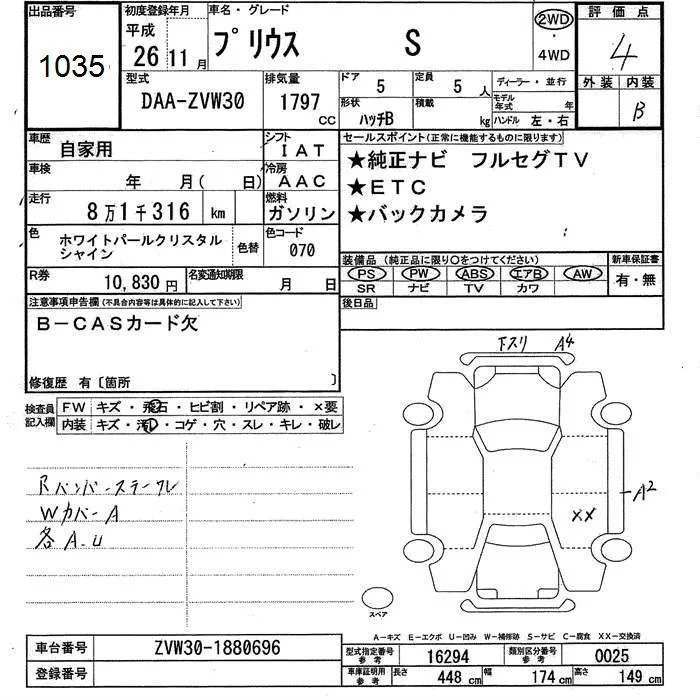 出品番号
1035
初度登録年月
平成
26 11月
車名・グレード
プリウス S
2WD
・
4WD
評価点
4
外装 内装
B
型式
DAA-ZVW30
排気量
1797
cc
ドア 5
定員 5 人
形状 ハッチB
積載 kg
ディーラー・並行
モデル年式 年
ハンドル 左・右
車歴
自家用
シフト
IAT
車検
年 月( 日)
冷房
AAC
走行
8万1千316 km
燃料
ガソリン
色
ホワイトパールクリスタル
シャイン
色替
色コード
070
R券
10,830円
名変通知期限
月 日
セールスポイント(正常に機能するものに限ります)
★純正ナビ フルセグTV
★ETC
★バックカメラ
装備品(純正品に限り○をつけてください)
PS PW ABS エアB AW
SR ナビ TV カワ
新車保証書
有・無
後日品
注意事項申告欄(不具合内容等は具体的に記入して下さい)
B-CASカード欠
修復歴 有〔箇所 〕
検査員
記入欄
FW キズ・飛石・ヒビ割・リペア跡・×要
内装 キズ・汚れ・コゲ・穴・スレ・キレ・破レ
下スリ A4
Rバンパーステーズレ
Wカバー A
各A.U
A2
XX
スペア
A-キズ E-エクボ U-凹み W-補修跡 S-サビ C-腐食 XX-交換済
車台番号
ZVW30-1880696
登録番号
型式指定番号
参考
16294
類別区分番号
参考
0025
車庫証明用
参考
長さ 448 cm
幅 174 cm
高さ 149 cm